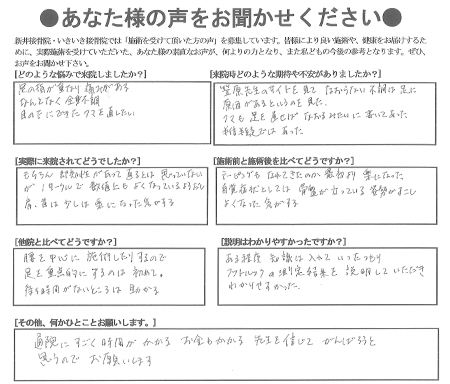 ●あなた様の声をお聞かせください●
新井接骨院・いきいき接骨院では「施術を受けて頂いた方の声」を募集しています。皆様により良い施術や、健康をお届けするために、実際施術を受けていただいた、あなた様の素直なお声が、何よりの力となり、また私どもの今後の参考となります。ぜひ、お声をお聞かせ下さい。
[どのような悩みで来院しましたか?]
足の指が重なり痛みがある
なんとなく全身不調
目の下にできたクマを直したい
[来院時どのような期待や不安がありましたか?]
笠原先生のサイトを見て なおらない不調は足に
原因があるというのを見た。
クマも足を直せばなおるみたいに書いてあった
半信半疑ではあった
[実際に来院されてどうでしたか?]
もちろん 即効性があって直るとは思っていない
が 1クールで 数値とも よくなっているようだし
肩、首は少しは楽になった気がする
[施術前と施術後を比べてどうですか?]
テーピングも なれてきたのか 最初より 楽になった
自覚症状としては 骨盤が立っている 姿勢がすこし
よくなった気がする
[他院と比べてどうですか?]
腰を中心に 施術したりするので
足を重点的にするのは 初めて。
待ち時間がないところは 助かる
[説明はわかりやすかったですか?]
ある程度 知識は入れて いったつもり
フットルックの測定結果を 説明していただき
わかりやすかった。
[その他、何かひとことお願いします。]
通院に すごく 時間が かかる お金もかかる 先生を信じて がんばろうと
思うので お願いします